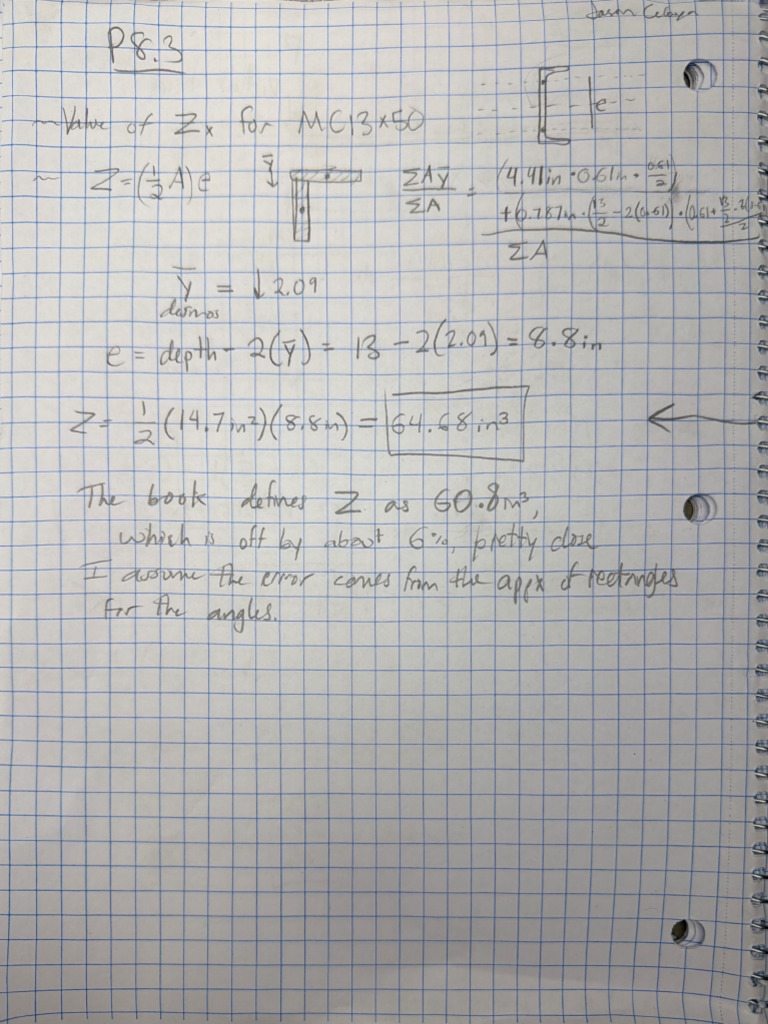 Jason
P8.3
~ Value of Zx for MC13×50
e
~ Z=(½A)e ȳ ΣAȳ/ΣA = (4.41in · 0.61in · 0.61/2) + (0.787in · (13/2 - 2(0.61)) · (0.61 +
ΣA
ȳ = ↓ 2.09
desmos
e = depth - 2(ȳ) = 13 - 2(2.09) = 8.8in
Z = ½ (14.7in²)(8.8in) = 64.68in³ ←
The book defines Z as 60.8in³,
which is off by about 6%, pretty close
I assume the error comes from the appx of rectangles
for the angles.